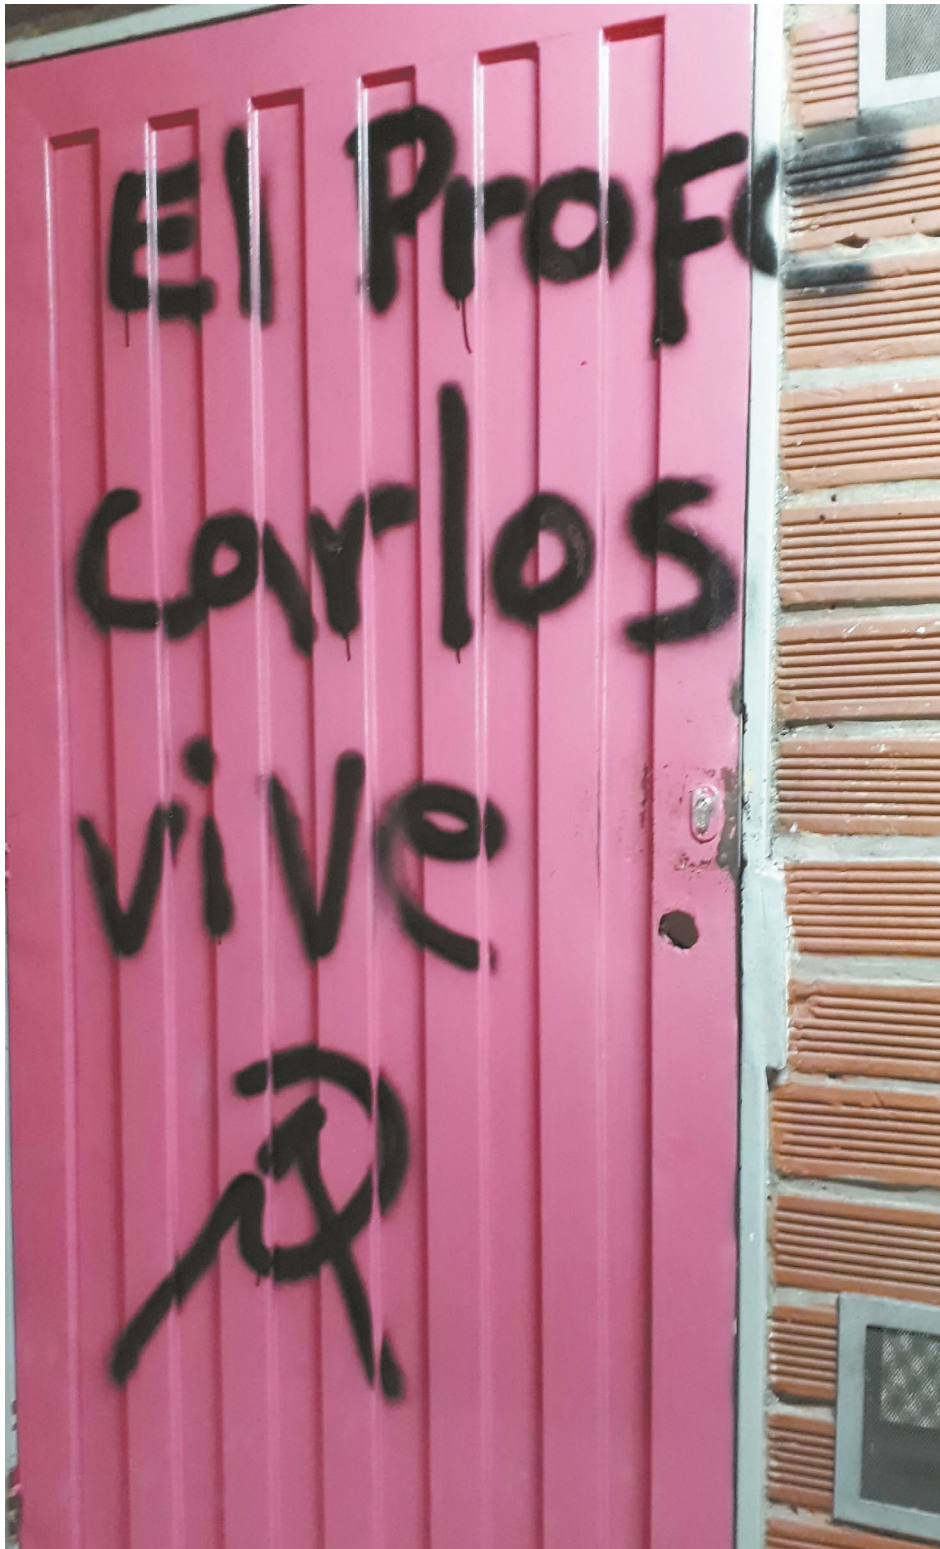 El Profe
Carlos
vive